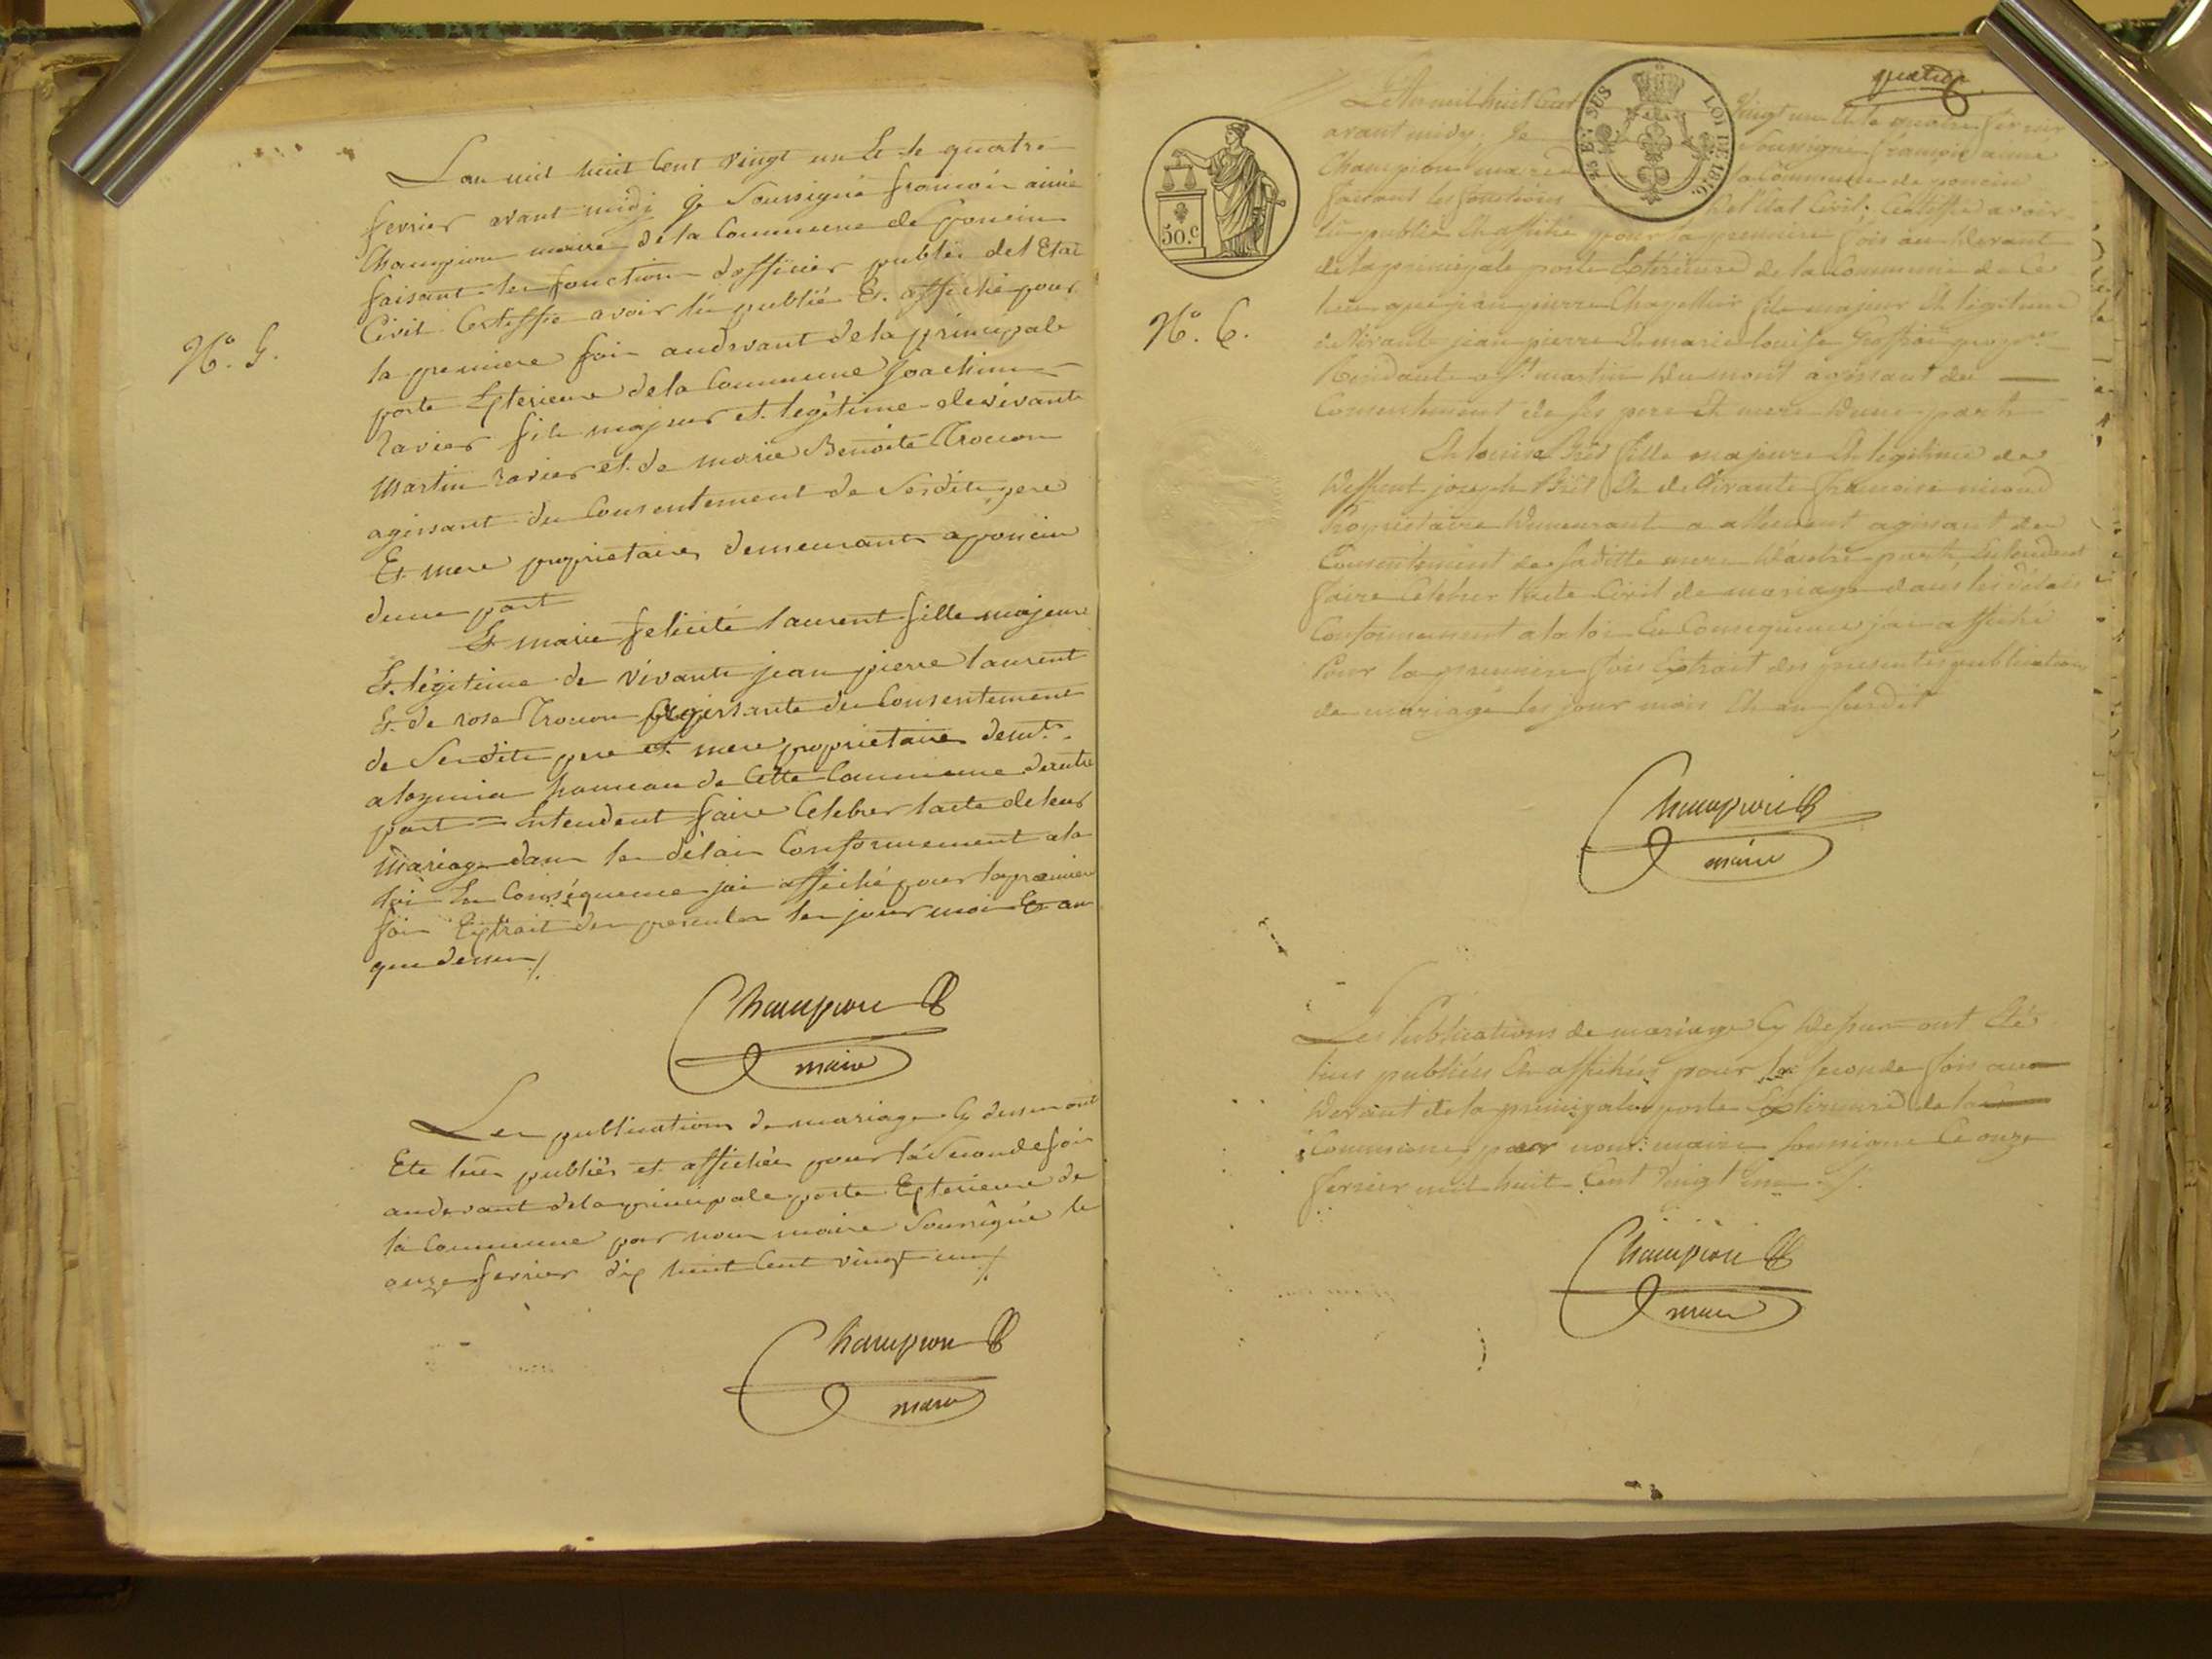 N.º 5.
L'an mil huit Cent vingt un Et le quatre
fevrier avant midi je Soussigné francois aimé
Champion maire de la Commune de poncin
faisant les fonction d'officier public de l'Etat
Civil Certiffie avoir lu publié Et affiché pour
la premiere fois audevant de la principale
porte Exterieure de la Commune Joachim
ravier fils majeur et legitime de vivants
Martin ravier et de marie Benoite Trocon
agissant du Consentement de Sesdits pere
Et mere proprietaires demeurants a poncin
dune part
Et marie felicité laurent fille majeure
Et légitime de vivants jean pierre laurent
Et de rose Trocon agissante du Consentement
de Sesdits pere et mere proprietaires demts.
a hameau de Cette Commune dautre
part = Entendent faire Celebrer lacte de leur
Mariage dans les délais Conformement a la
loi En Conséquence jai affiché pour la premiere
fois Extrait des presentes les jour mois Et an
que dessus ./.
Champion
maire
Les publications de mariage Cy dessus ont
Eté lues publiées et affichées pour la Seconde fois
audevant de la principale porte Exterieure de
la Commune par nous maire Soussigné le
onze fevrier dix huit Cent vingt un ./.
Champion
maire
quatre
50.c
EN SUS LOI DE 1816.
N.º 6.
L'An mil huit Cent vingt un Et le quatre fevrier
avant midi, Je Soussigné françois aimé
Champion maire de la Commune de poncin
faisant les fonctions de l'Etat Civil, Certiffie avoir
lu publié Et affiché pour la premiere fois au devant
de la principale porte Extérieure de la Commune de Ce
lieu que jean pierre fils majeur Et légitime
de vivants jean pierre Et marie louise
Residants a St. martin du mont agissant du
Consentement de ses pere Et mere d'une part
Et louise Bret fille majeure Et légitime de
deffunt joseph Bret Et de Vivante françoise
Propriétaire demeurant a allement agissant du
Consentement de saditte mere d'autre part, Entendent
faire Célébrer l'acte Civil de mariage dans les délais
Conformement a la loi En Consequence j'ai affiché
Pour la premiere fois Extrait des presentes publications
de mariage les jour mois Et an susdit
Champion
maire
Les Publications de mariage Cy dessus ont Eté
lues publiées Et affichées pour la seconde fois au
devant de la principale porte Extérieure de la
Commune, par nous maire soussigné le onze
fevrier mil huit Cent vingt un ./.
Champion
maire